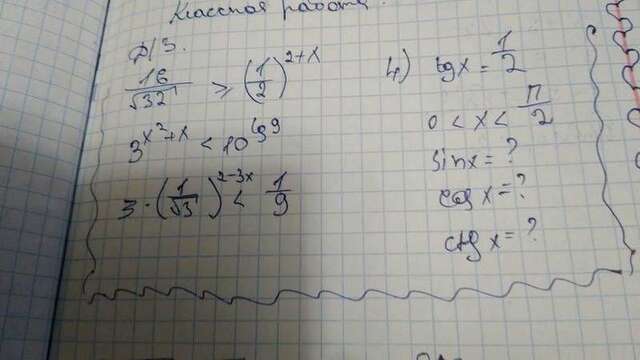 Классная работа.
Д/З.
16/√32 ≥ (1/2)^(2+x)
3^(x²+x) < 10^(lg9)
3·(1/√3)^(2-3x) < 1/9
4) tgx = 1/2
0 < x < π/2
sinx = ?
cosx = ?
ctgx = ?